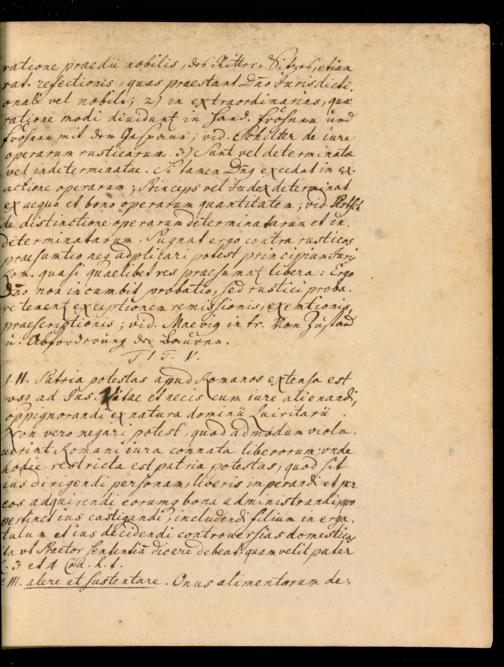 ratione praedii nobilis, des Ritter-Sitzes, etiam
rat. refectionis, quas praestant Dno Jurisdicti
onali vel nobili; 2) in extraordinarias, quae
ratione modi dividunt in Hand-frohnen und
frohnen mit dem Gespann; vid. Schilter de iure
operarum rusticarum. 3) Sunt vel determinatae
vel indeterminatae. Si tamen Dng excedat in ex-
actione operarum; Princeps vel Judex determinat
ex aequo et bono operarum quantitatem; vid.
de distinctione operarum determinatarum et in-
determinatarum. Pugnat ergo contra rusticos
praesumtio neq adplicari potest principium Juris
Rom. quasi quaelibet res praesumat libera: Ergo
Dno non incumbit probatio, sed rustici proba-
re tenent exceptionem remissionis, exemtionis,
praescriptionis; vid. Maevig in tr. Von Zustand
u. Abforderung der Bauren.
TIT. V.
§. II. Patria potestas apud Romanos extensa est
usq ad Jus Vitae et necis cum iure alienandi,
oppignorandi ex natura dominii Quiritarii
Non vero negari potest, quod admodum viola-
verint Romani iura connata liberorum; unde
hodie restricta est patria potestas, quod sit
ius dirigendi personam, liberis imperandi et per
eos adquirendi eorumq bona administrandi, quo
pertinet ius castigandi, includendi filium in erga-
tulum et ius decidendi controversias domesticas
ita vt Praetor sententiam dicere debeat, quam velit pater
L. 3 et 4 Cod. h. t.
§. III. alere et sustentare. Onus alimentorum de-